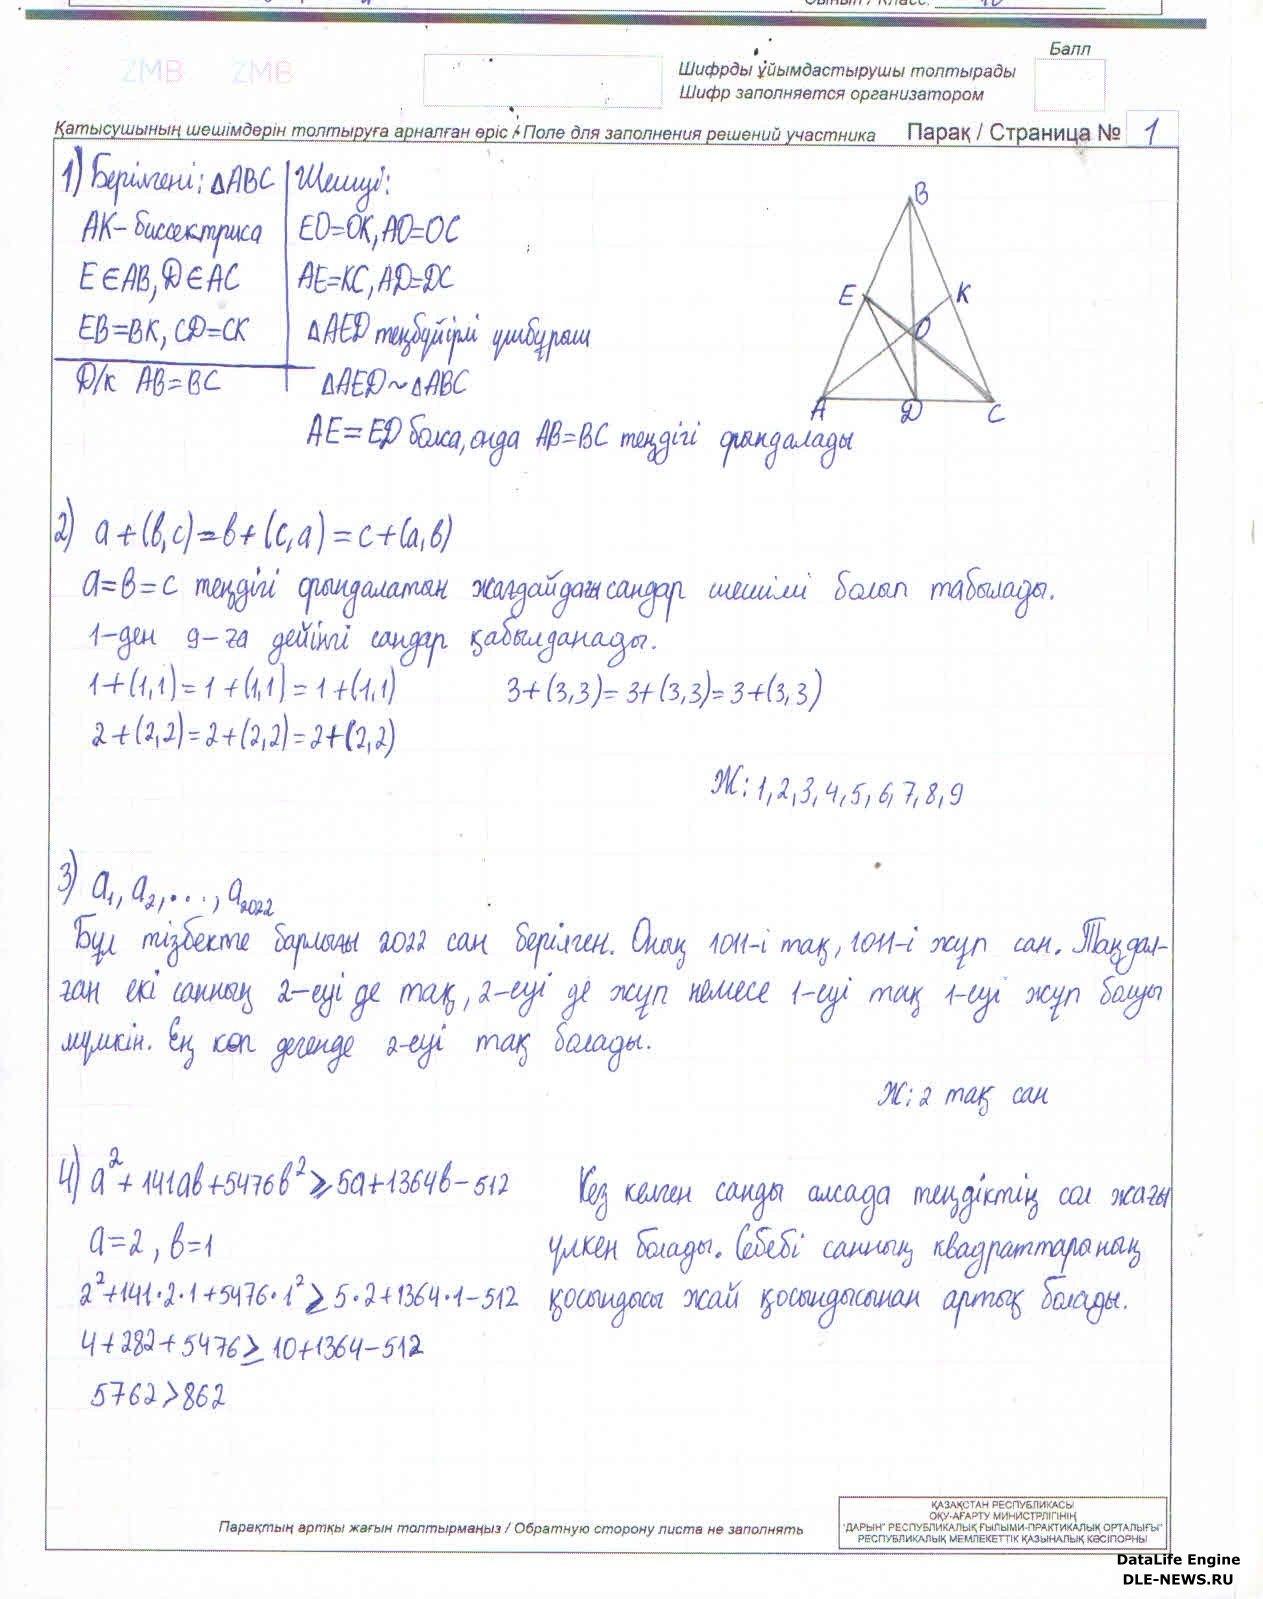 Сынып / Класс: 10
ZMB ZMB
Балл
Шифрды ұйымдастырушы толтырады
Шифр заполняется организатором
Қатысушының шешімдерін толтыруға арналған өріс / Поле для заполнения решений участника Парақ / Страница № 1
1) Берілгені: △ABC Шешуі:
AK – биссектриса EO=OK, AO=OC
E∈AB, D∈AC AE=KC, AD=DC
EB=BK, CD=CK △AED теңбүйірлі үшбұрыш
Д/к AB=BC △AED~△ABC
AE=ED болса, онда AB=BC теңдігі орындалады
B
E K
O
A D C
2) a+(b,c)=b+(c,a)=c+(a,b)
a=b=c теңдігі орындалатын жағдайдағы сандар шешімі болып табылады.
1-ден 9-ға дейінгі сандар қабылданады.
1+(1,1)=1+(1,1)=1+(1,1) 3+(3,3)=3+(3,3)=3+(3,3)
2+(2,2)=2+(2,2)=2+(2,2)
Ж: 1,2,3,4,5,6,7,8,9
3) a₁, a₂, ..., a₂₀₂₂
Бұл тізбекте барлығы 2022 сан берілген. Оның 1011-і тақ, 1011-і жұп сан. Таңдал-
ған екі санның 2-еуі де тақ, 2-еуі де жұп немесе 1-еуі тақ 1-еуі жұп болуы
мүмкін. Ең көп дегенде 2-еуі тақ болады.
Ж: 2 тақ сан
4) a²+141ab+5476b²≥5a+1364b-512 Кез келген санды алсада теңдіктің сол жағы
a=2, b=1 үлкен болады. Себебі санның квадраттарының
2²+141·2·1+5476·1²≥5·2+1364·1-512 қосындысы жай қосындысынан артық болады.
4+282+5476≥10+1364-512
5762>862
Парақтың артқы жағын толтырмаңыз / Обратную сторону листа не заполнять
ҚАЗАҚСТАН РЕСПУБЛИКАСЫ
ОҚУ-АҒАРТУ МИНИСТРЛІГІНІҢ
"ДАРЫН" РЕСПУБЛИКАЛЫҚ ҒЫЛЫМИ-ПРАКТИКАЛЫҚ ОРТАЛЫҒЫ"
РЕСПУБЛИКАЛЫҚ МЕМЛЕКЕТТІК ҚАЗЫНАЛЫҚ КӘСІПОРНЫ
DataLife Engine
DLE-NEWS.RU